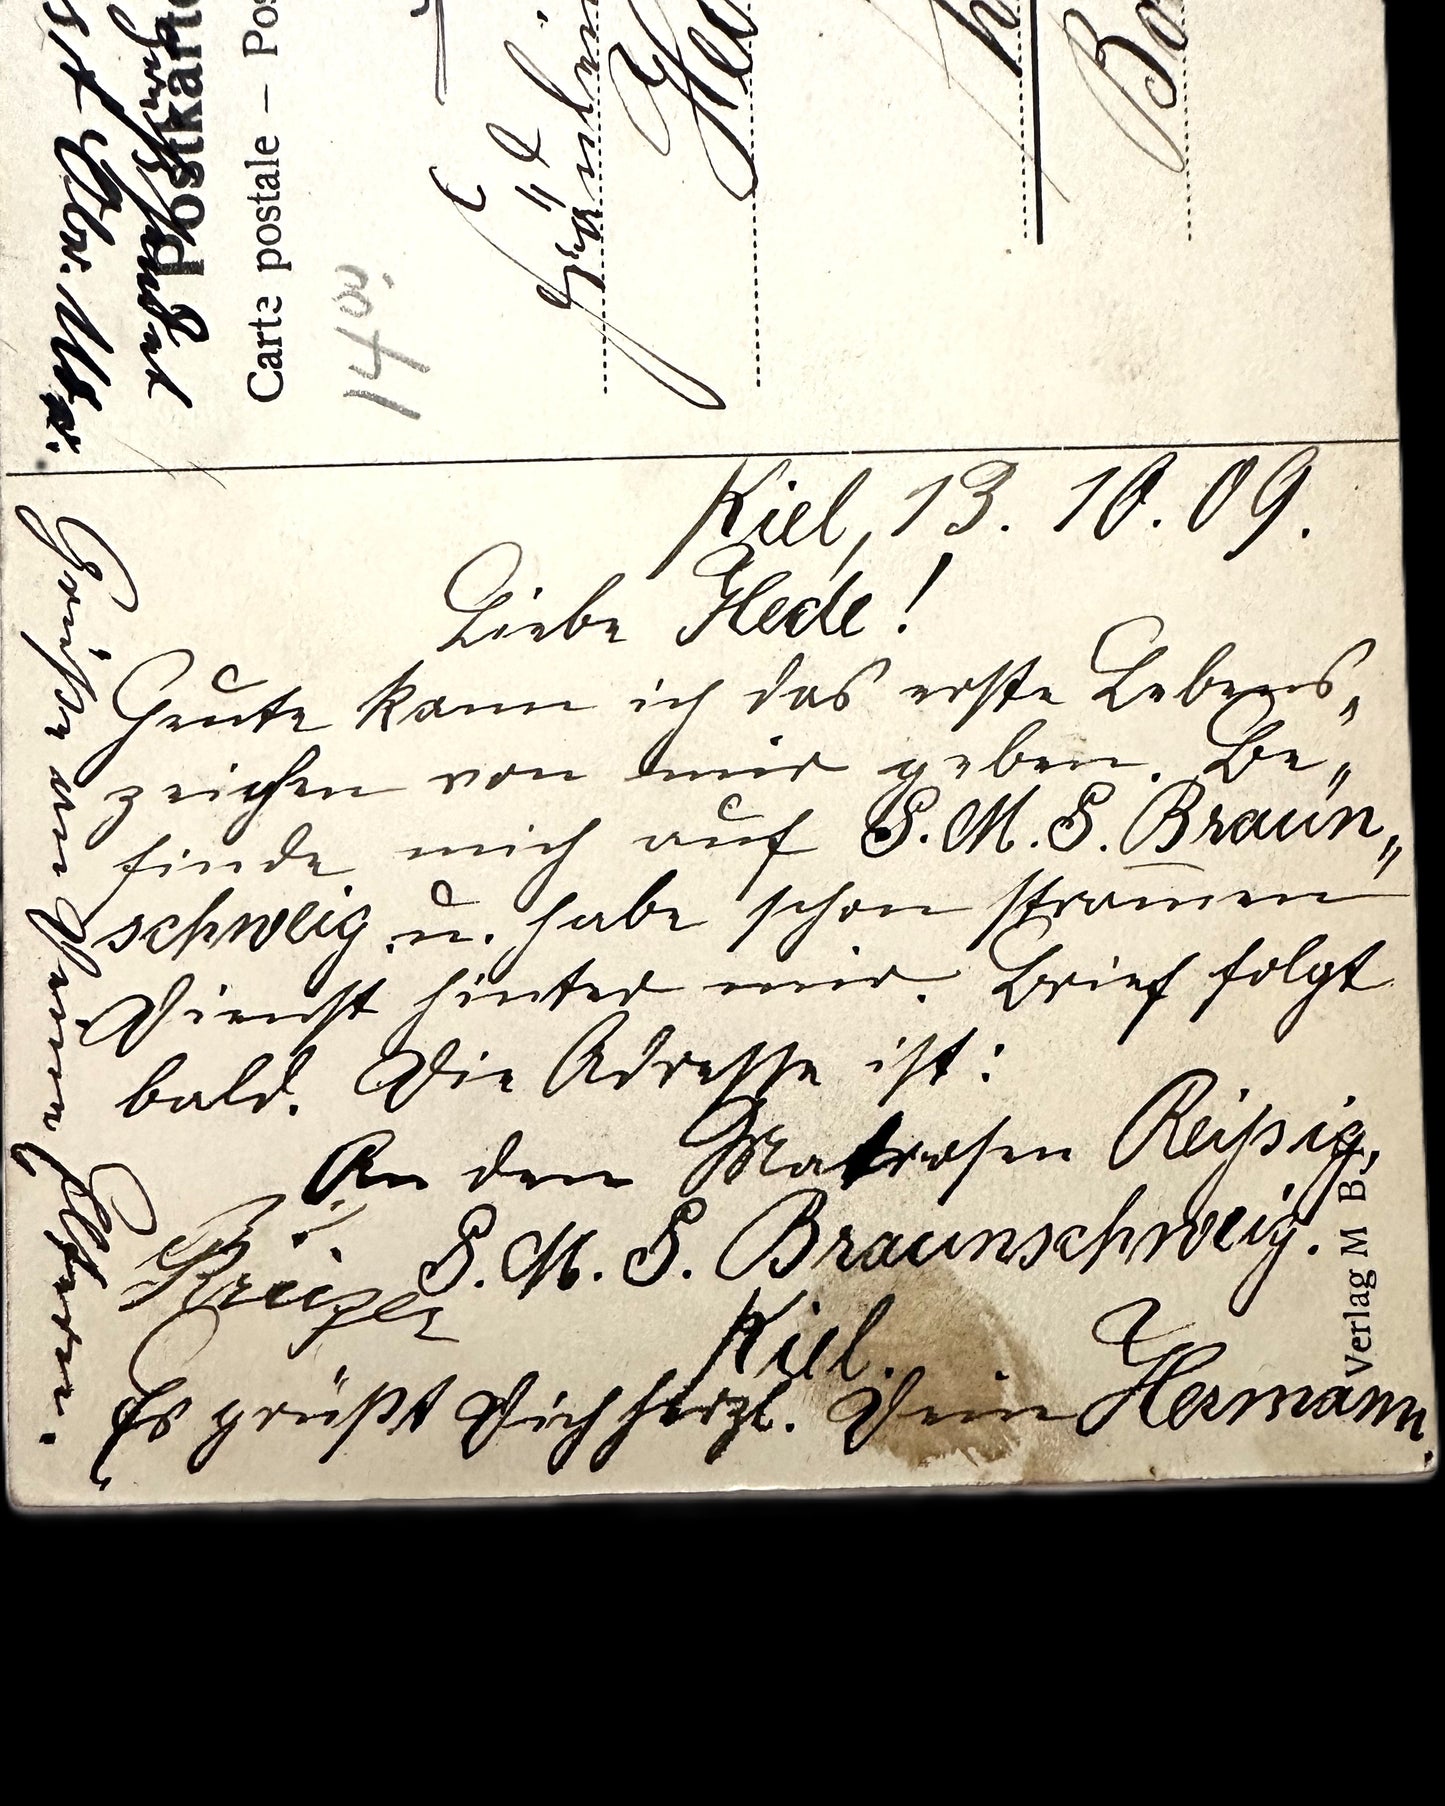 Postkarte
Carte postale – Pos
140.
Fräulein
Hed
Kiel, 13.10.09.
Liebe Hede!
Heute kann ich das erste Lebens„
zeichen von mir geben. Be„
finde mich auf S.M.S. Braun„
schweig u. habe schon stram̅en
Dienst hinter mir. Brief folgt
bald. Die Adresse ist:
An den Matrosen Reißig,
S.M.S. Braunschweig.
Kiel.
Es grüßt Dich herzl. Dein Hermann.
Grüße an Deine Eltern.
Verlag M B